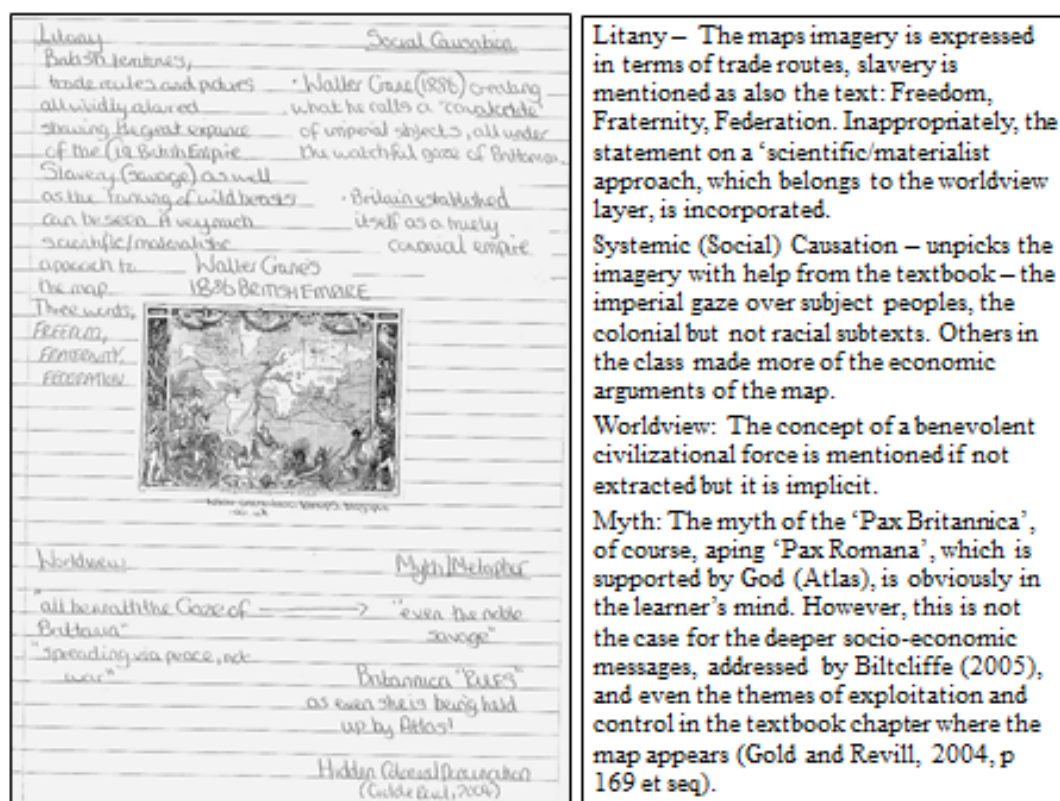 Litany
British territories,
trade routes and pictures
all vividly
showing the great expanse
of the C19 British Empire
Slavery (savage) as well
as the taming of wild beasts
can be seen. A very much
scientific/materialistic
approach to
the map.
Three words,
FREEDOM,
FRATERNITY,
FEDERATION
Social Causation
· Walter Crane (1886) creating
what he calls a "
of imperial subjects, all under
the watchful gaze of
· Britain established
itself as a truely
colonial empire
Walter Crane's
1886 BRITISH EMPIRE
Worldview
"all beneath the Gaze of
Brittania"
"spreading via peace, not
war"
Myth/Metaphor
"even the noble
savage"
Britannica "RULES"
as even she is being held
up by Atlas!
Hidden Colonial
(Gold & Revill, 2004)
Litany – The maps imagery is expressed
in terms of trade routes, slavery is
mentioned as also the text: Freedom,
Fraternity, Federation. Inappropriately, the
statement on a ‘scientific/materialist
approach, which belongs to the worldview
layer, is incorporated.
Systemic (Social) Causation – unpicks the
imagery with help from the textbook – the
imperial gaze over subject peoples, the
colonial but not racial subtexts. Others in
the class made more of the economic
arguments of the map.
Worldview: The concept of a benevolent
civilizational force is mentioned if not
extracted but it is implicit.
Myth: The myth of the ‘Pax Britannica’,
of course, aping ‘Pax Romana’, which is
supported by God (Atlas), is obviously in
the learner’s mind. However, this is not
the case for the deeper socio-economic
messages, addressed by Biltcliffe (2005),
and even the themes of exploitation and
control in the textbook chapter where the
map appears (Gold and Revill, 2004, p
169 et seq).